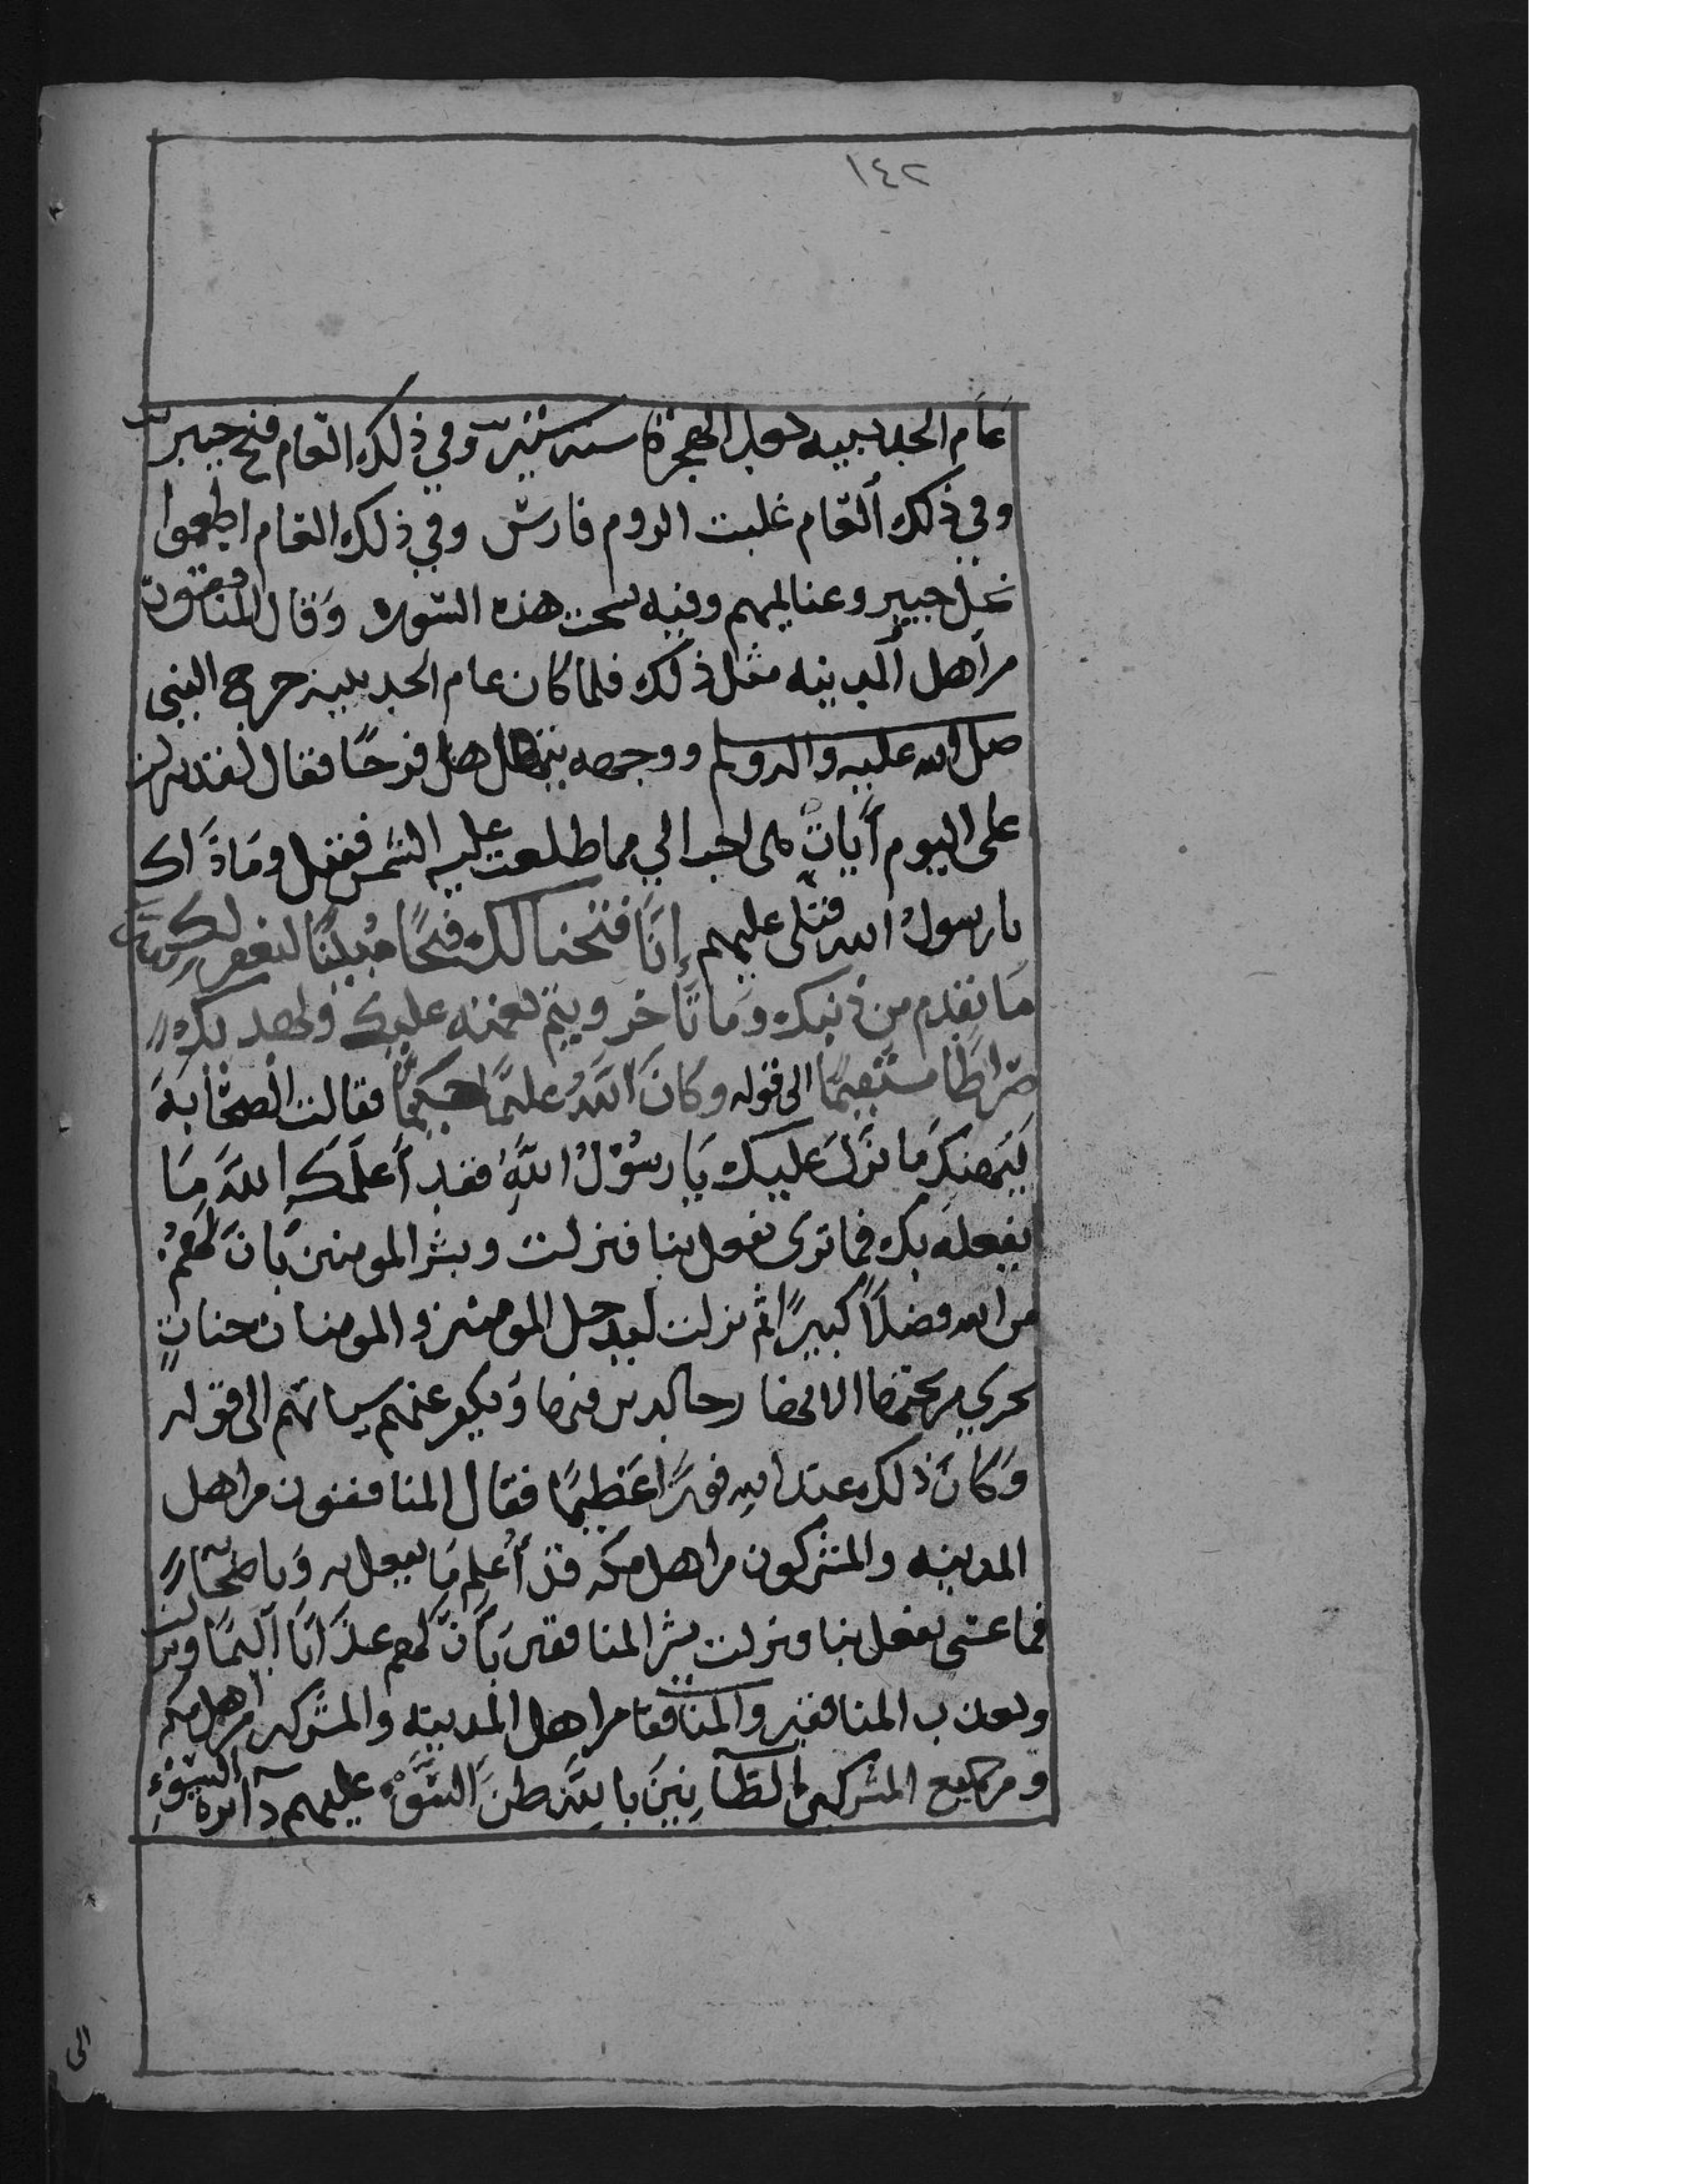 ١٤٢
عام الحديبيه بعد الهجرة سنه ستين وفي ذلك العام فتح خيبر
وفي ذلك العام غلبت الروم فارس وفي ذلك العام اطعموا
نخل خيبر وعنا ليهم وفيه نسخت هذه السوره وقال المنافقون
من اهل المدينه مثل ذلك فلما كان عام الحديبيه خرج النبي
صلى الله عليه واله وسلم ووجهه يتهلل فرحًا فقال لقد نزلت
على اليوم آيات هي احب الي مما طلعت عليه الشمس فقيل وما ذاك
يا رسول الله فتلى عليهم إنا فتحنا لك فتحًا مبينًا ليغفر لك الله
ما تقدم من ذنبك وما تأخر ويتم نعمته عليك ويهديك
صراطا مستقيمًا الى قوله وكان الله عليمًا حكيمًا فقالت الصحابة
ليهنك ما نزل عليك يا رسول الله فقد أعلمك الله ما
يفعله بك فما ترى يفعل بنا فنزلت وبشر المومنين بان لهم
من الله فضلًا كبيرًا ثم نزلت ليدخل المومنين والمومنات جناتٍ
تجري من تحتها الانهار خالدين فيها ويكفر عنهم سياتهم الى قوله
وكان ذلك عند الله فوزًا عظيمًا فقال المنافقون من اهل
المدينه والمشركون من اهل مكه قد أعلم ما يفعل به وباصحابه
فما عسى يفعل بنا ونزلت بشر المنافقين بأن لهم عذابًا أليمًا ونزلت
ويعذب المنافقين والمنافقات من اهل المدينه والمشركين من اهل مكه
ومن جميع المشركين الظآنين بالله ظن السَّوء عليهم دائرة السوء
الى